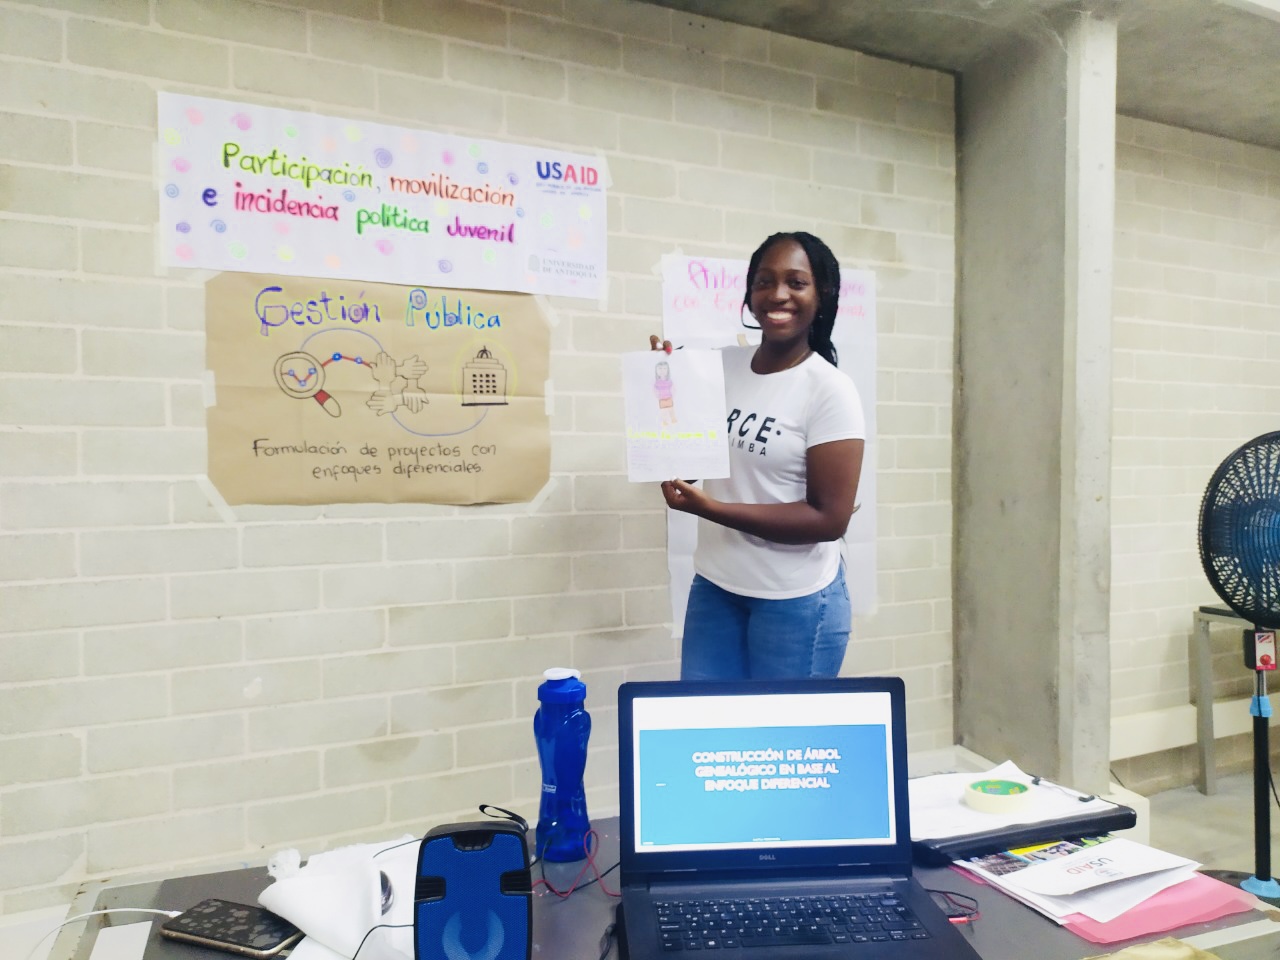 Participación, movilización
e incidencia política Juvenil
USAID
UNIVERSIDAD
DE ANTIOQUIA
Gestión Pública
Formulación de proyectos con
enfoques diferenciales.
RCE.
IMBA
CONSTRUCCIÓN DE ÁRBOL
GENEALÓGICO EN BASE AL
ENFOQUE DIFERENCIAL
DELL
USAID